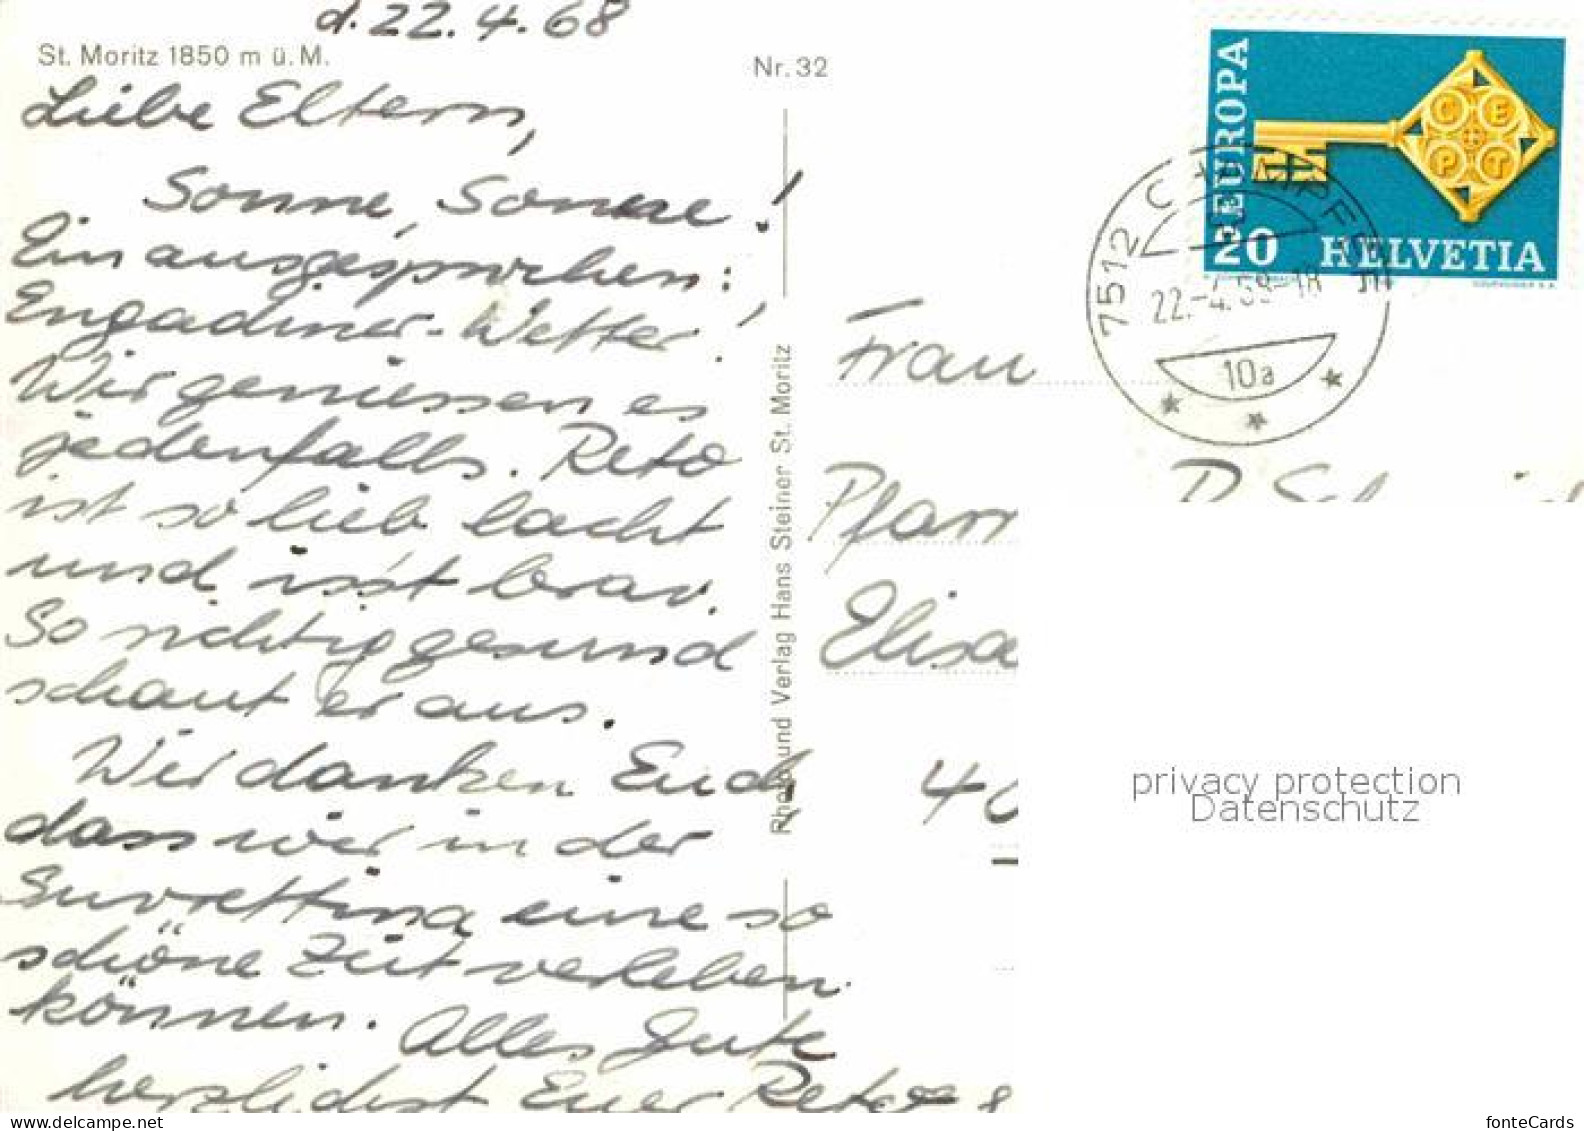 d. 22.4.68
St. Moritz 1850 m ü. M.
Nr. 32
Liebe Eltern,
Sonne, Sonne!
Ein ausgesprochen:
Engadiner-Wetter!
Wir geniessen es
jedenfalls. Reto
ist so lieb lacht
und isst brav.
So richtig gesund
schaut er aus.
Wir danken Euch,
dass wir in der
Suvrettina eine so
schöne Zeit verleben
können. Alles Gute
herzlichst Euer Reto &
Photo und Verlag Hans Steiner St. Moritz
EUROPA
C E
P T
20 HELVETIA
7512 CHAMPFÈR
22.-4.68-18
10a
Frau
Pfarr
Elisa
40
privacy protection
Datenschutz
delcampe.net
fonteCards